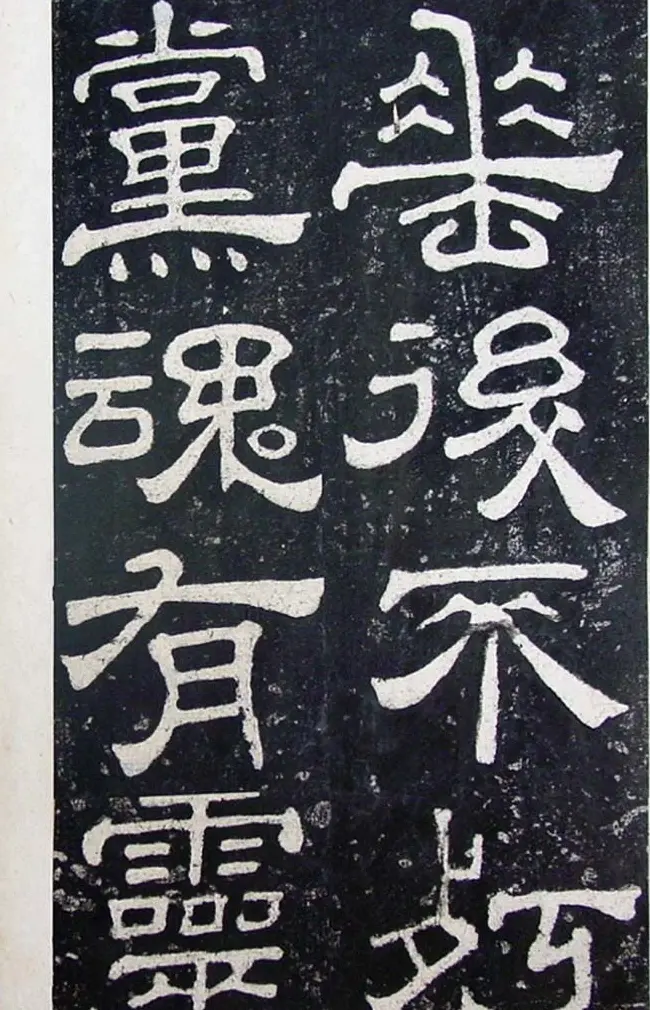 垂後不㱙
黨魂有靈